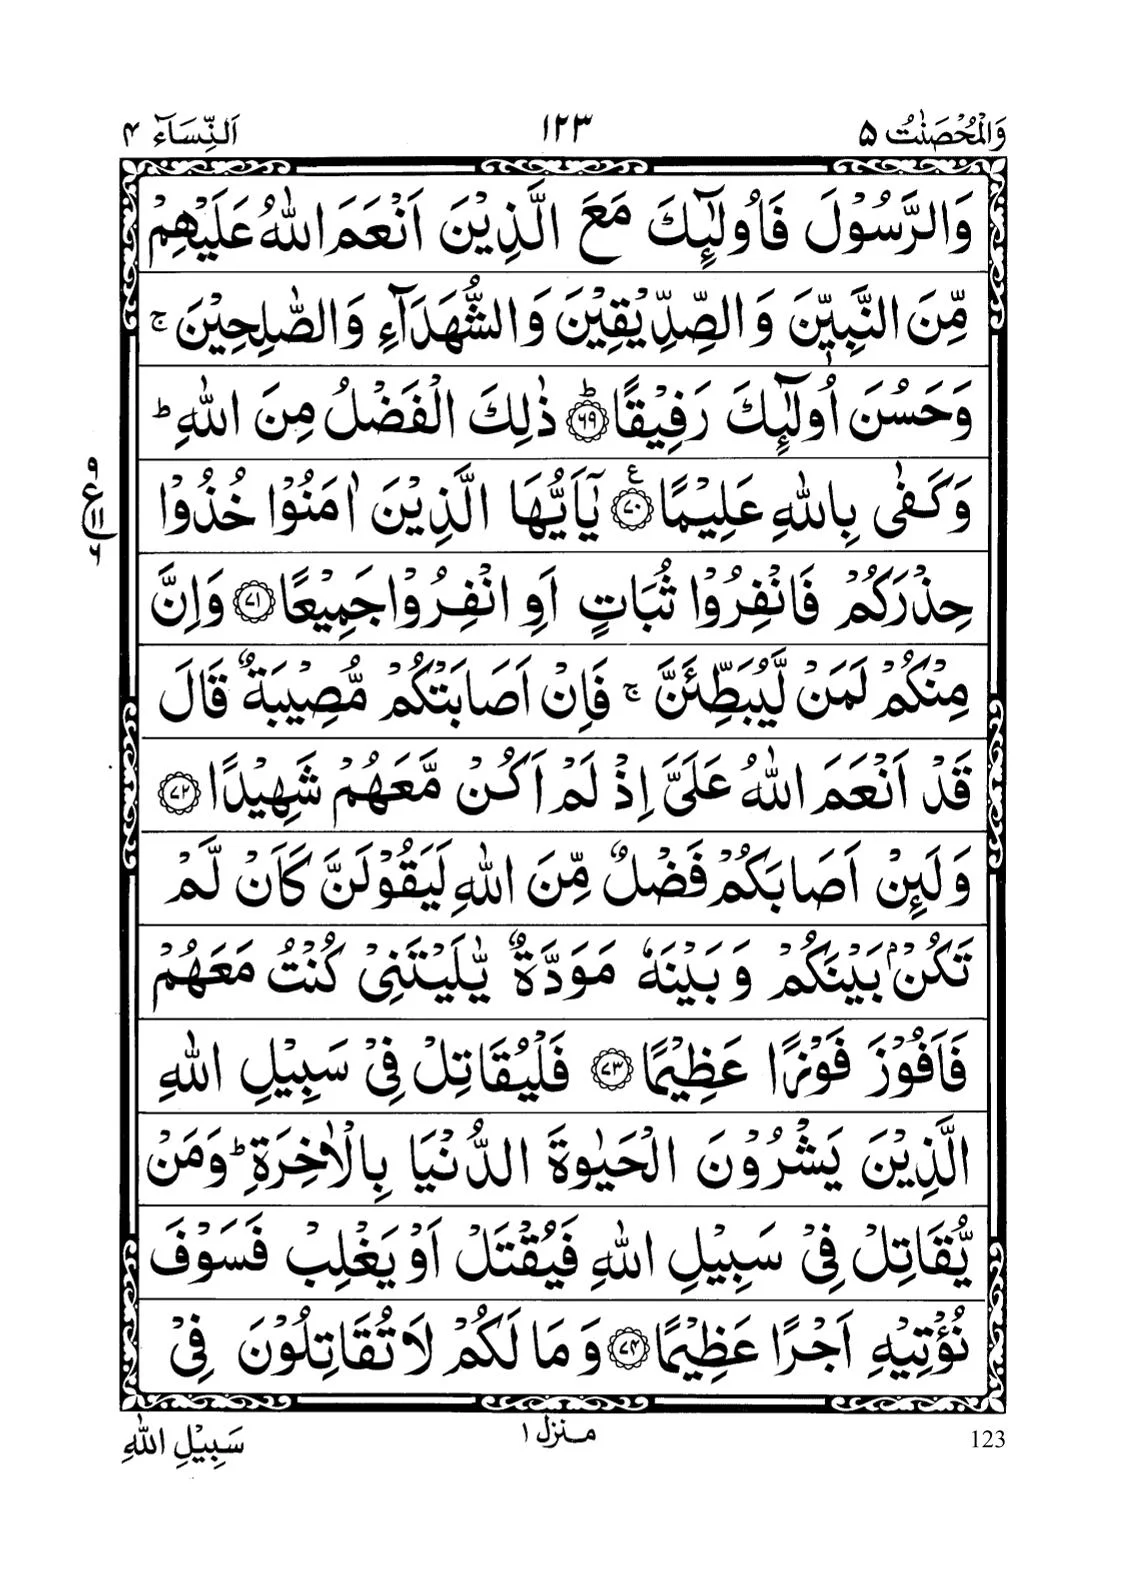 وَالْمُحْصَنٰتُ ۵ ۱۲۳ اَلنِّسَآء ۴
وَالرَّسُوْلَ فَاُولٰٓئِكَ مَعَ الَّذِيْنَ اَنْعَمَ اللّٰهُ عَلَيْهِمْ
مِّنَ النَّبِيّٖنَ وَالصِّدِّيْقِيْنَ وَالشُّهَدَآءِ وَالصّٰلِحِيْنَ ۚ
وَحَسُنَ اُولٰٓئِكَ رَفِيْقًا ؕ‏﴿۶۹﴾ ذٰلِكَ الْفَضْلُ مِنَ اللّٰهِ ؕ
وَكَفٰى بِاللّٰهِ عَلِيْمًا ﴿۷۰﴾ ع يٰۤاَيُّهَا الَّذِيْنَ اٰمَنُوْا خُذُوْا
۹ ع ۱۱ ۶
حِذْرَكُمْ فَانْفِرُوْا ثُبَاتٍ اَوِ انْفِرُوْا جَمِيْعًا ﴿۷۱﴾ وَاِنَّ
مِنْكُمْ لَمَنْ لَّيُبَطِّئَنَّ ۚ فَاِنْ اَصَابَتْكُمْ مُّصِيْبَةٌ قَالَ
قَدْ اَنْعَمَ اللّٰهُ عَلَىَّ اِذْ لَمْ اَكُنْ مَّعَهُمْ شَهِيْدًا ﴿۷۲﴾
وَلَئِنْ اَصَابَكُمْ فَضْلٌ مِّنَ اللّٰهِ لَيَقُوْلَنَّ كَاَنْ لَّمْ
تَكُنْۢ بَيْنَكُمْ وَبَيْنَهٗ مَوَدَّةٌ يّٰلَيْتَنِىْ كُنْتُ مَعَهُمْ
فَاَفُوْزَ فَوْزًا عَظِيْمًا ﴿۷۳﴾ فَلْيُقَاتِلْ فِىْ سَبِيْلِ اللّٰهِ
الَّذِيْنَ يَشْرُوْنَ الْحَيٰوةَ الدُّنْيَا بِالْاٰخِرَةِ ؕ وَمَنْ
يُّقَاتِلْ فِىْ سَبِيْلِ اللّٰهِ فَيُقْتَلْ اَوْ يَغْلِبْ فَسَوْفَ
نُؤْتِيْهِ اَجْرًا عَظِيْمًا ﴿۷۴﴾ وَمَا لَكُمْ لَا تُقَاتِلُوْنَ فِىْ
123 منزل ۱ سَبِيْلِ اللّٰهِ